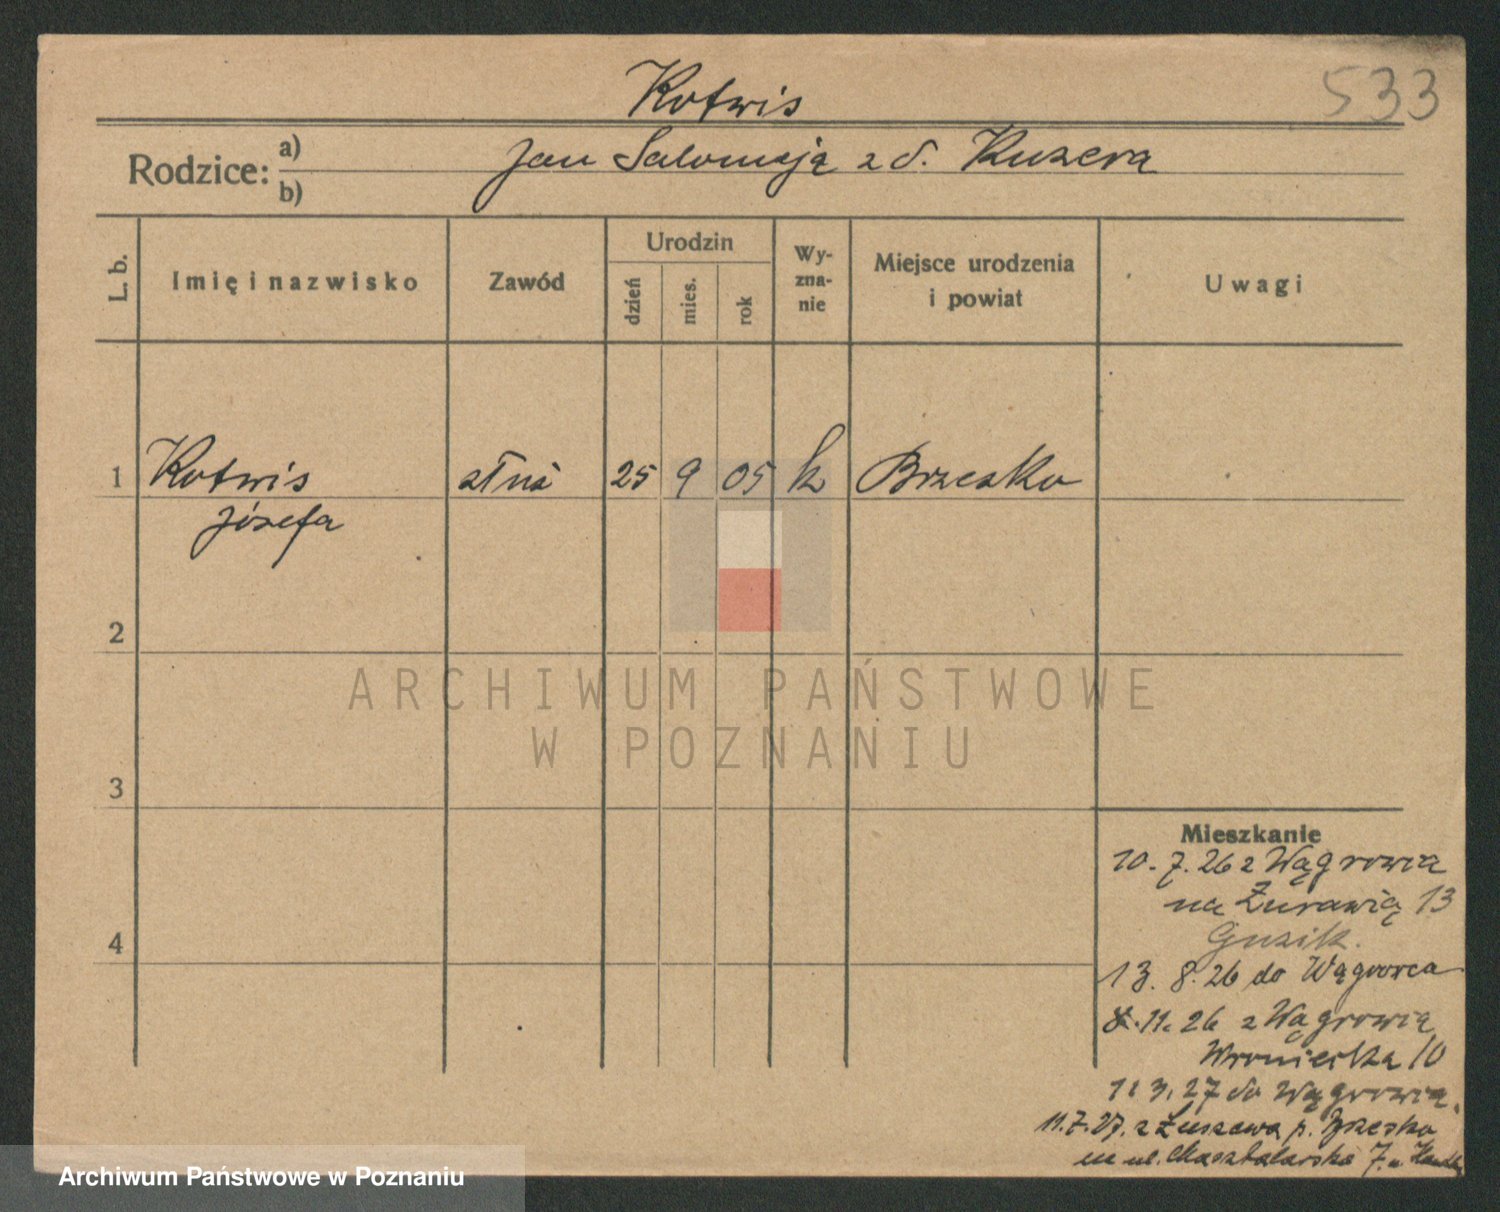 Kotwis
533
Rodzice: a) Jan Salomeją z d. Kuzera
b)
L. b.
Imię i nazwisko
Zawód
Urodzin
dzień
mies.
rok
Wy-
zna-
nie
Miejsce urodzenia
i powiat
Uwagi
1 Kotwis służ 25 9 05 k Brzesko
Józefa
2
3
4
ARCHIWUM PAŃSTWOWE
W POZNANIU
Mieszkanie
10.7.26 z Wągrowca
na Żurawią 13
Guzik.
13.8.26 do Wągrowca
8.11.26 z Wągrowca
Wroniecka 10
1.3.27 do Wągrowca.
11.7.27. z Łuszewa p. Brzesko
na ul. Masztalarska 7.
Archiwum Państwowe w Poznaniu